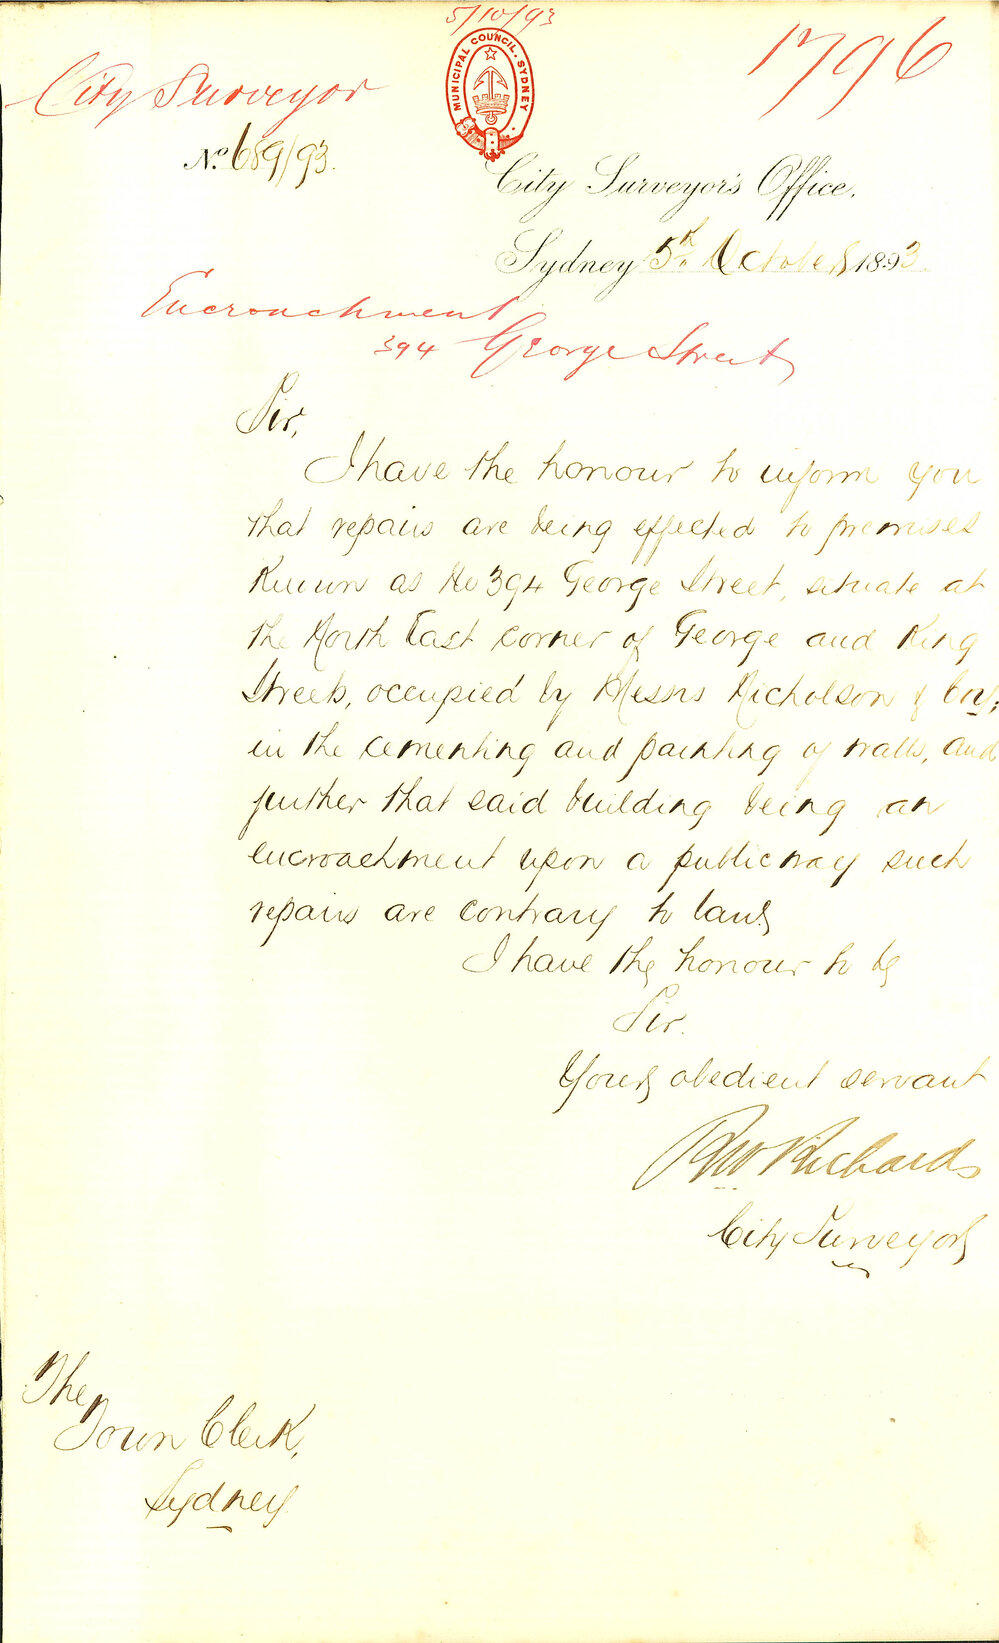 5/10/93
1796
City Surveyor
MUNICIPAL COUNCIL. SYDNEY
No. 689/93.
City Surveyor's Office.
Sydney 5th October 1893.
Encroachment
394 George Street
Sir,
I have the honour to inform you
that repairs are being effected to premises
Known as No 394 George Street, situate at
the North East corner of George and King
Streets, occupied by Messrs Nicholson & Coy;
in the cementing and painting of walls, and
further that said building being an
encroachment upon a public way such
repairs are contrary to law.
I have the honour to be
Sir.
Your obedient servant
RW Richards
City Surveyor
The
Town Clerk,
Sydney